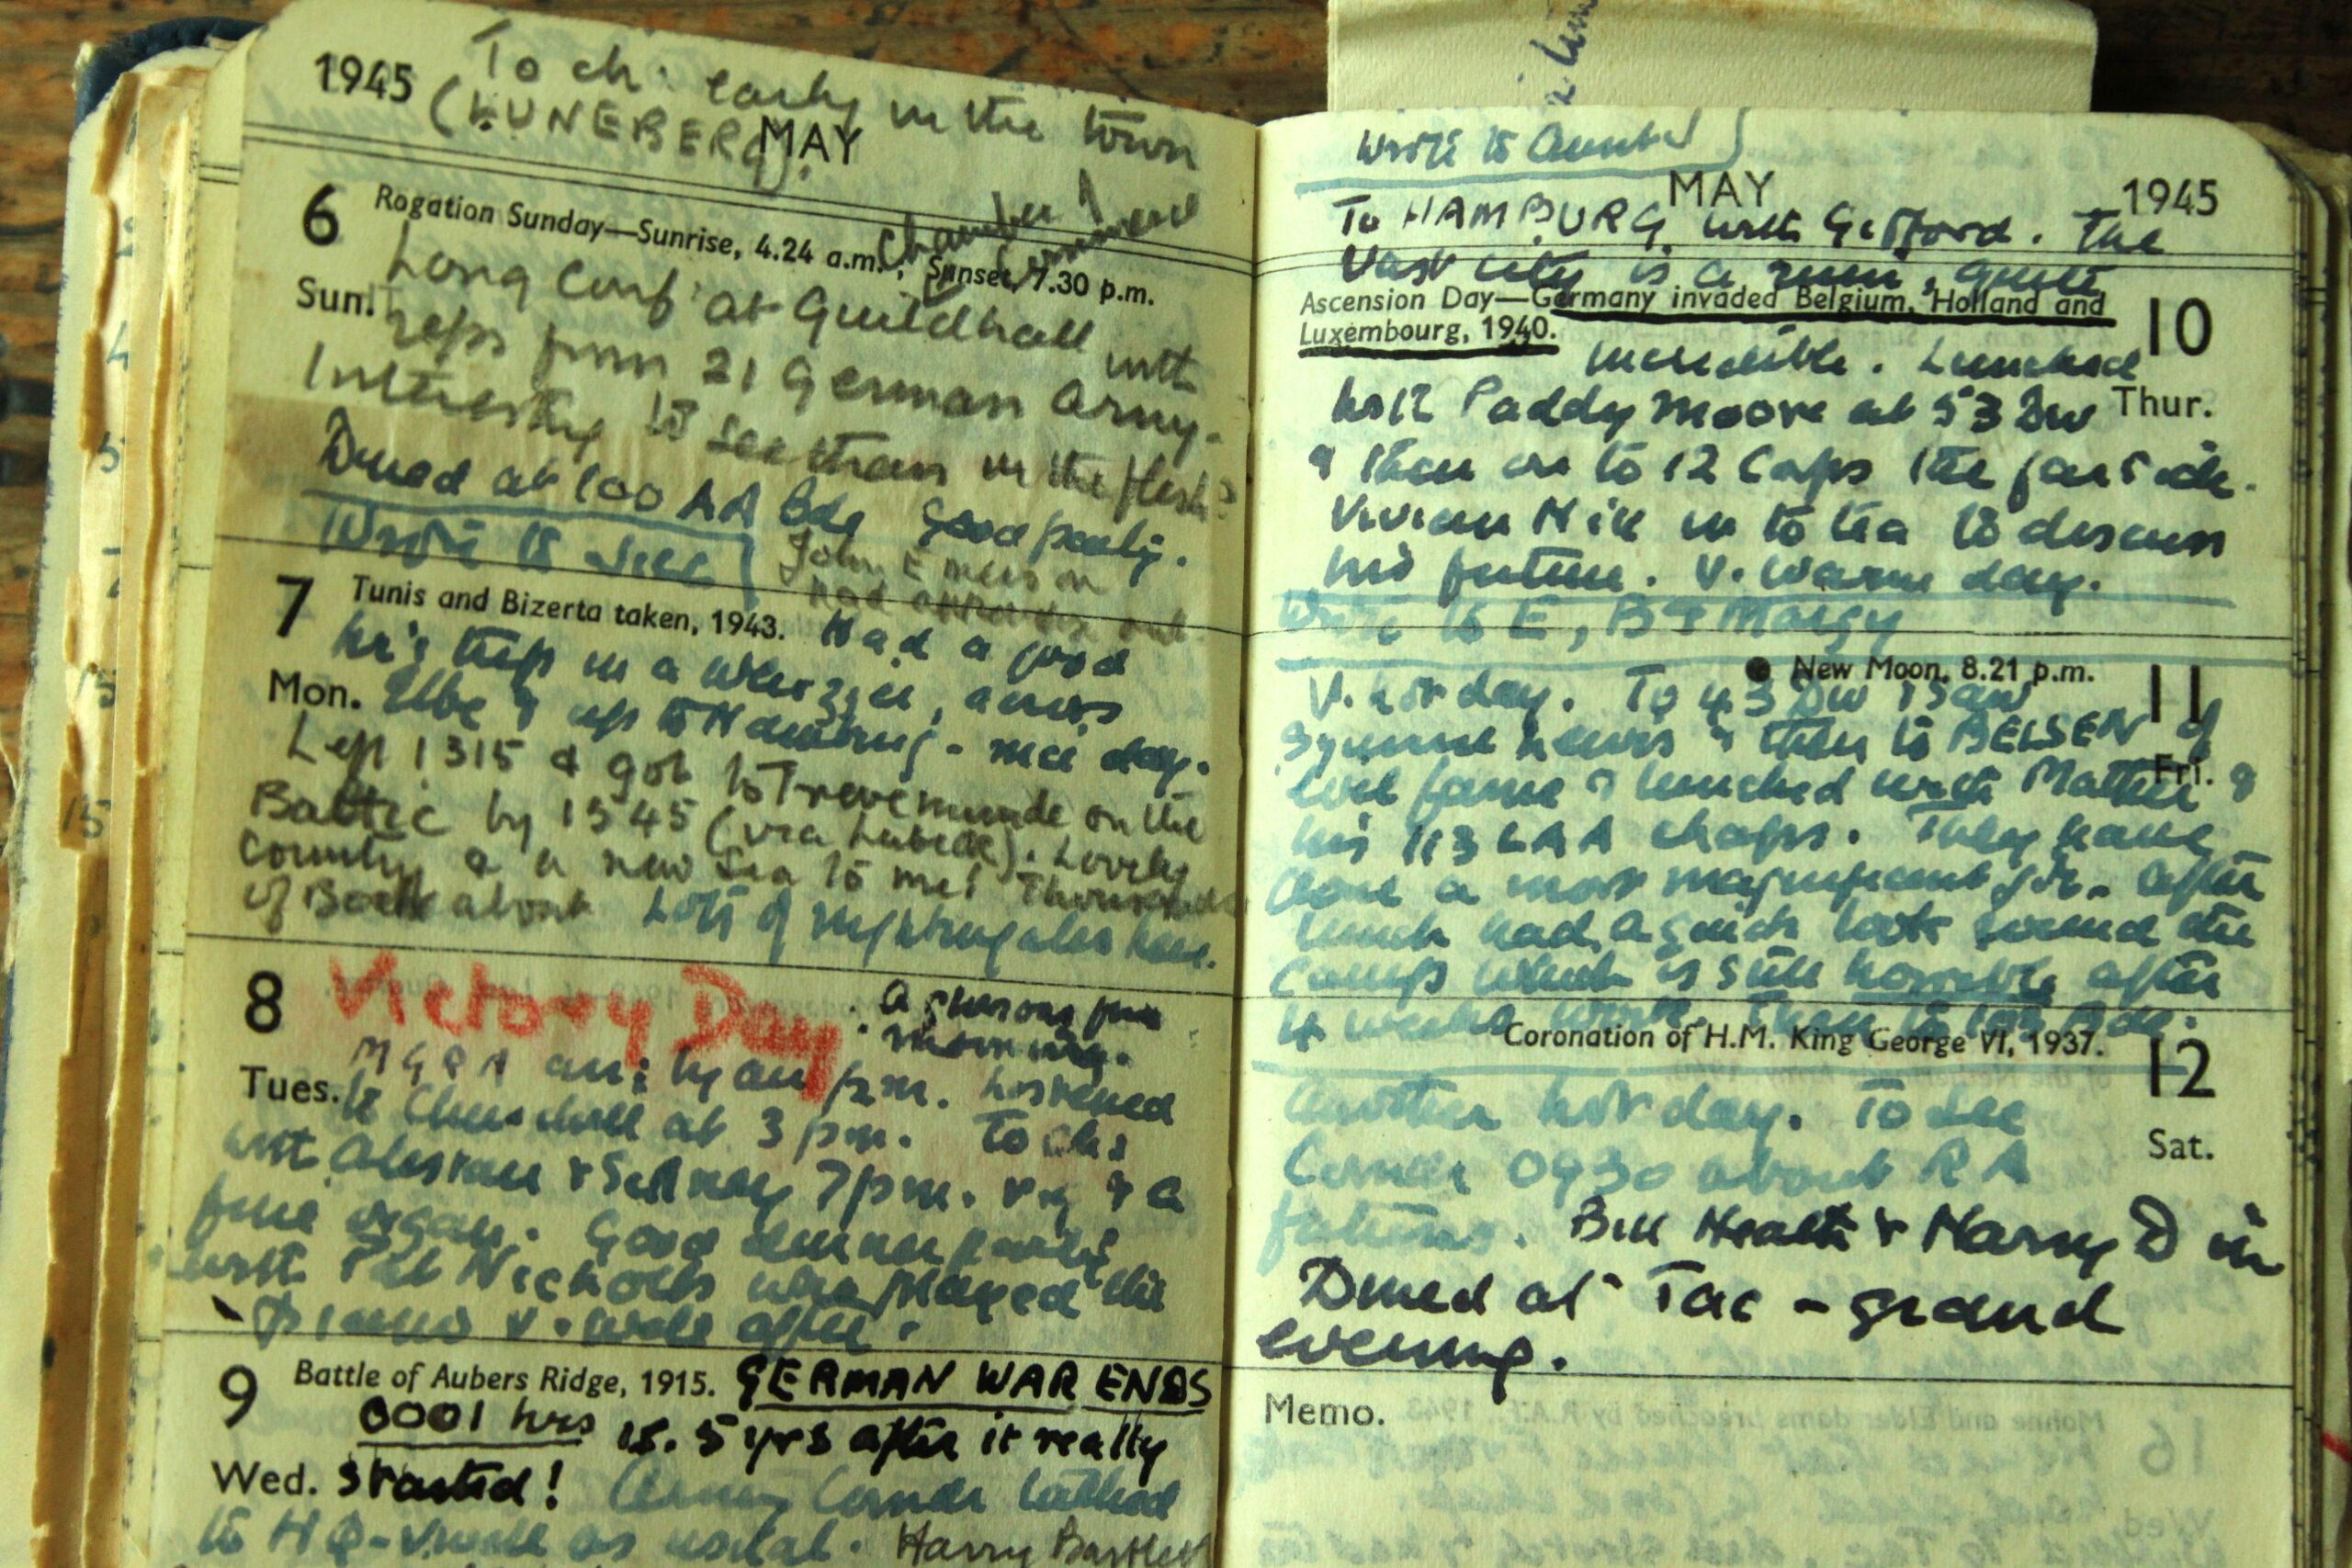 1945
To ch: early in the town
(LUNEBERG).
MAY
6 Rogation Sunday—Sunrise, 4.24 a.m., Sunset, 7.30 p.m.
Sun.
Long Conf: at Guildhall with
reps from 21 German Army.
Interesting to see them in the flesh
Dined at 100 AA Bde good party.
Wrote to
John
7 Tunis and Bizerta taken, 1943. Had a good
Mon.
hr's trip in a, across
Elbe & up to - nice day.
Left 1315 & got to Travemunde on the
Baltic by 1545 (via Lubeck). Lovely
country & a new sea to me! Thousands
of Boche about Lots of nightingales here.
8 Victory Day
A glorious fine
morning.
Tues.
MGRA an: by air p.m. Listened
to Churchill at 3 pm. To ch:
with & Sidney 7pm. v.g & a
fine organ. Good dinner party
with Pat Nicholls who played the
piano v. well after.
9 Battle of Aubers Ridge, 1915. GERMAN WAR ENDS
0001 hrs is. 5 yrs after it really
Wed. started! Army Comdr talked
to HQ - v. well as usual. Harry Bartlett
Wrote to Aunt
MAY
1945
To HAMBURG with Gifford. The
vast city is a ruin, quite
Ascension Day—Germany invaded Belgium, Holland and
Luxembourg, 1940.
10
Thur.
incredible. Lunched
with Paddy Moore at 53 Div
& then on to 12 Corps the far side.
Vivian Hill in to tea to discuss
his future. V. warm day.
Wrote to E, B & Margy
New Moon, 8.21 p.m.
11
Fri.
V. hot day. To 43 Div & saw
then to BELSEN of
evil fame & lunched with Mather &
his 113 LAA chaps. They have
done a most magnificent job. After
lunch had a quick look round the
camp which is still horrible after
4 weeks work. Then to Bde.
Coronation of H.M. King George VI, 1937.
12
Sat.
Another hot day. To see
Comdr 0930 about RA
futures. Bill Heath & Harry D in
Dined at Tac - grand
evening.
Memo.